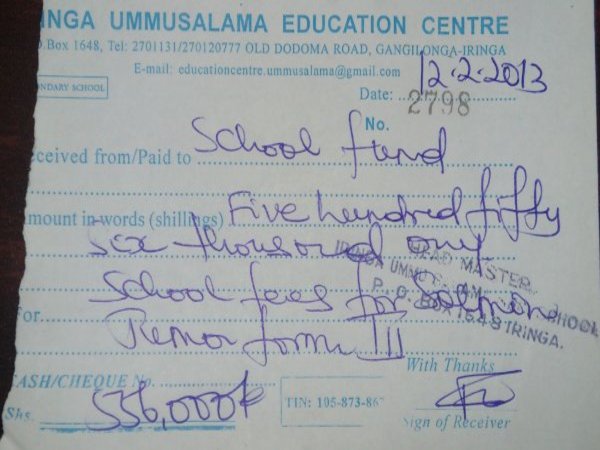 INGA UMMUSALAMA EDUCATION CENTRE
.Box 1648, Tel: 2701131/270120777 OLD DODOMA ROAD, GANGILONGA-IRINGA
E-mail: educationcentre.ummusalama@gmail.com
NDARY SCHOOL
Date: 12.2.2013
No. 2798
eceived from/Paid to School fund
mount in words (shillings) Five hundred fiffy
Six thousand only
HEAD MASTER
IRINGA UMMU SCHOOL
P. O. BOX 1648 IRINGA.
School fees for
or
form III
With Thanks
CASH/CHEQUE No.
Shs 556,000/=
TIN: 105-873-867
Sign of Receiver